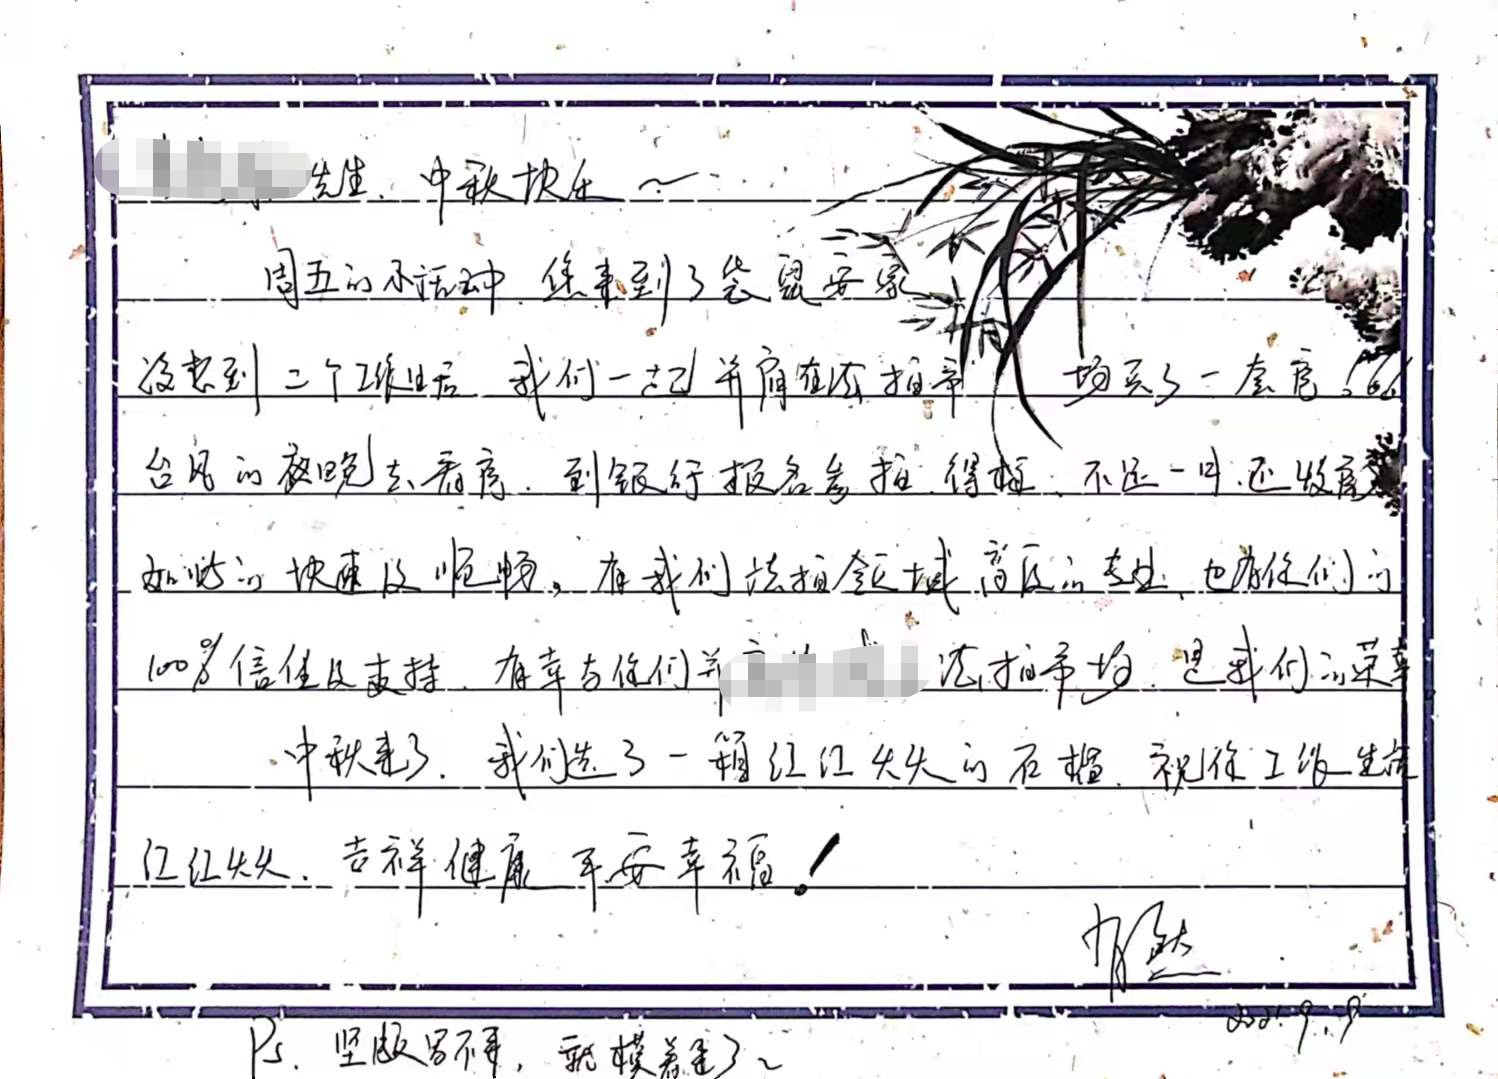 先生、中秋快乐~
周五的不活动中、您来到了袋鼠安家
没想到二个工作日后 我们一起并肩在法拍市 场买了一套房!
台风的夜晚去看房、到银行报名参拍、得标、不足一月、还收房
如此的快速及顺畅。有我们法拍领域高度的专业、也有你们的
100%信任及支持、有幸与你们并 法拍市场、是我们的荣幸
中秋来了、我们选了一箱红红火火的石榴、祝你工作生活
红红火火、吉祥健康 平安幸福!
2021.9.19
Ps.